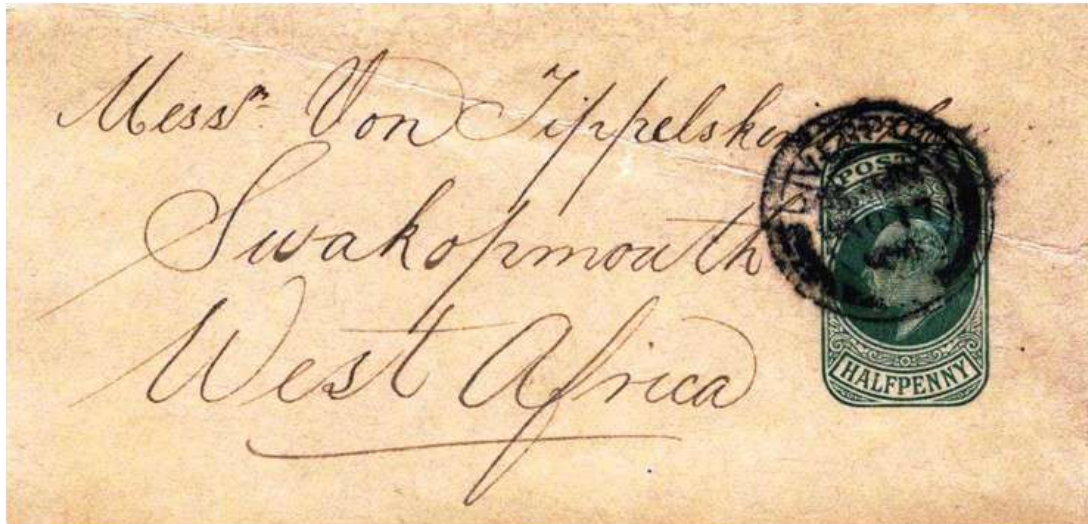 Messrs. Von Tippelskirch
Swakopmouth
West Africa
LIVERPOOL
POSTAGE
HALFPENNY